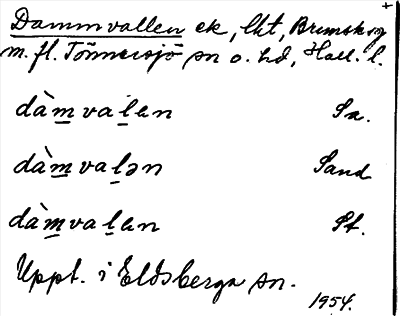 +
Dammvallen ek, lkt, Brunskog
m. fl. Tönnersjö sn o. hd, Hall. l.
dàm̲val̲en Sa.
dàm̲val̲ən Sand
dàm̲val̲en St.
Uppt. i Eldsberga sn.
1954.